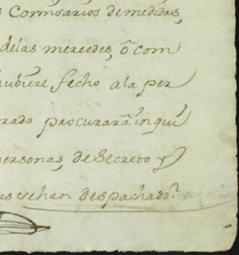 Comisarios de medidas,
delas mercedes, ô com
hubiere fecho ala per
rado procurarâ inqui
personas de Secreto y
se han despachado.